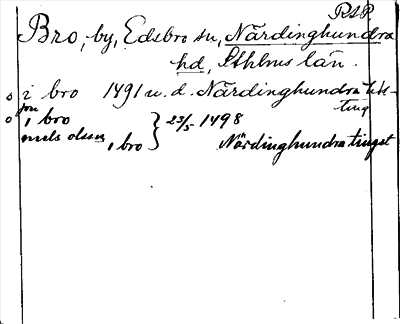 P.S.P.
Bro, by, Edsbro sn, Närdinghundra
hd, Sthlms län.
i bro 1491 u. d. Närdinghundra
ting
jon
i bro
niels olsson, i bro } 23/5 1498 Närdinghundra tingst